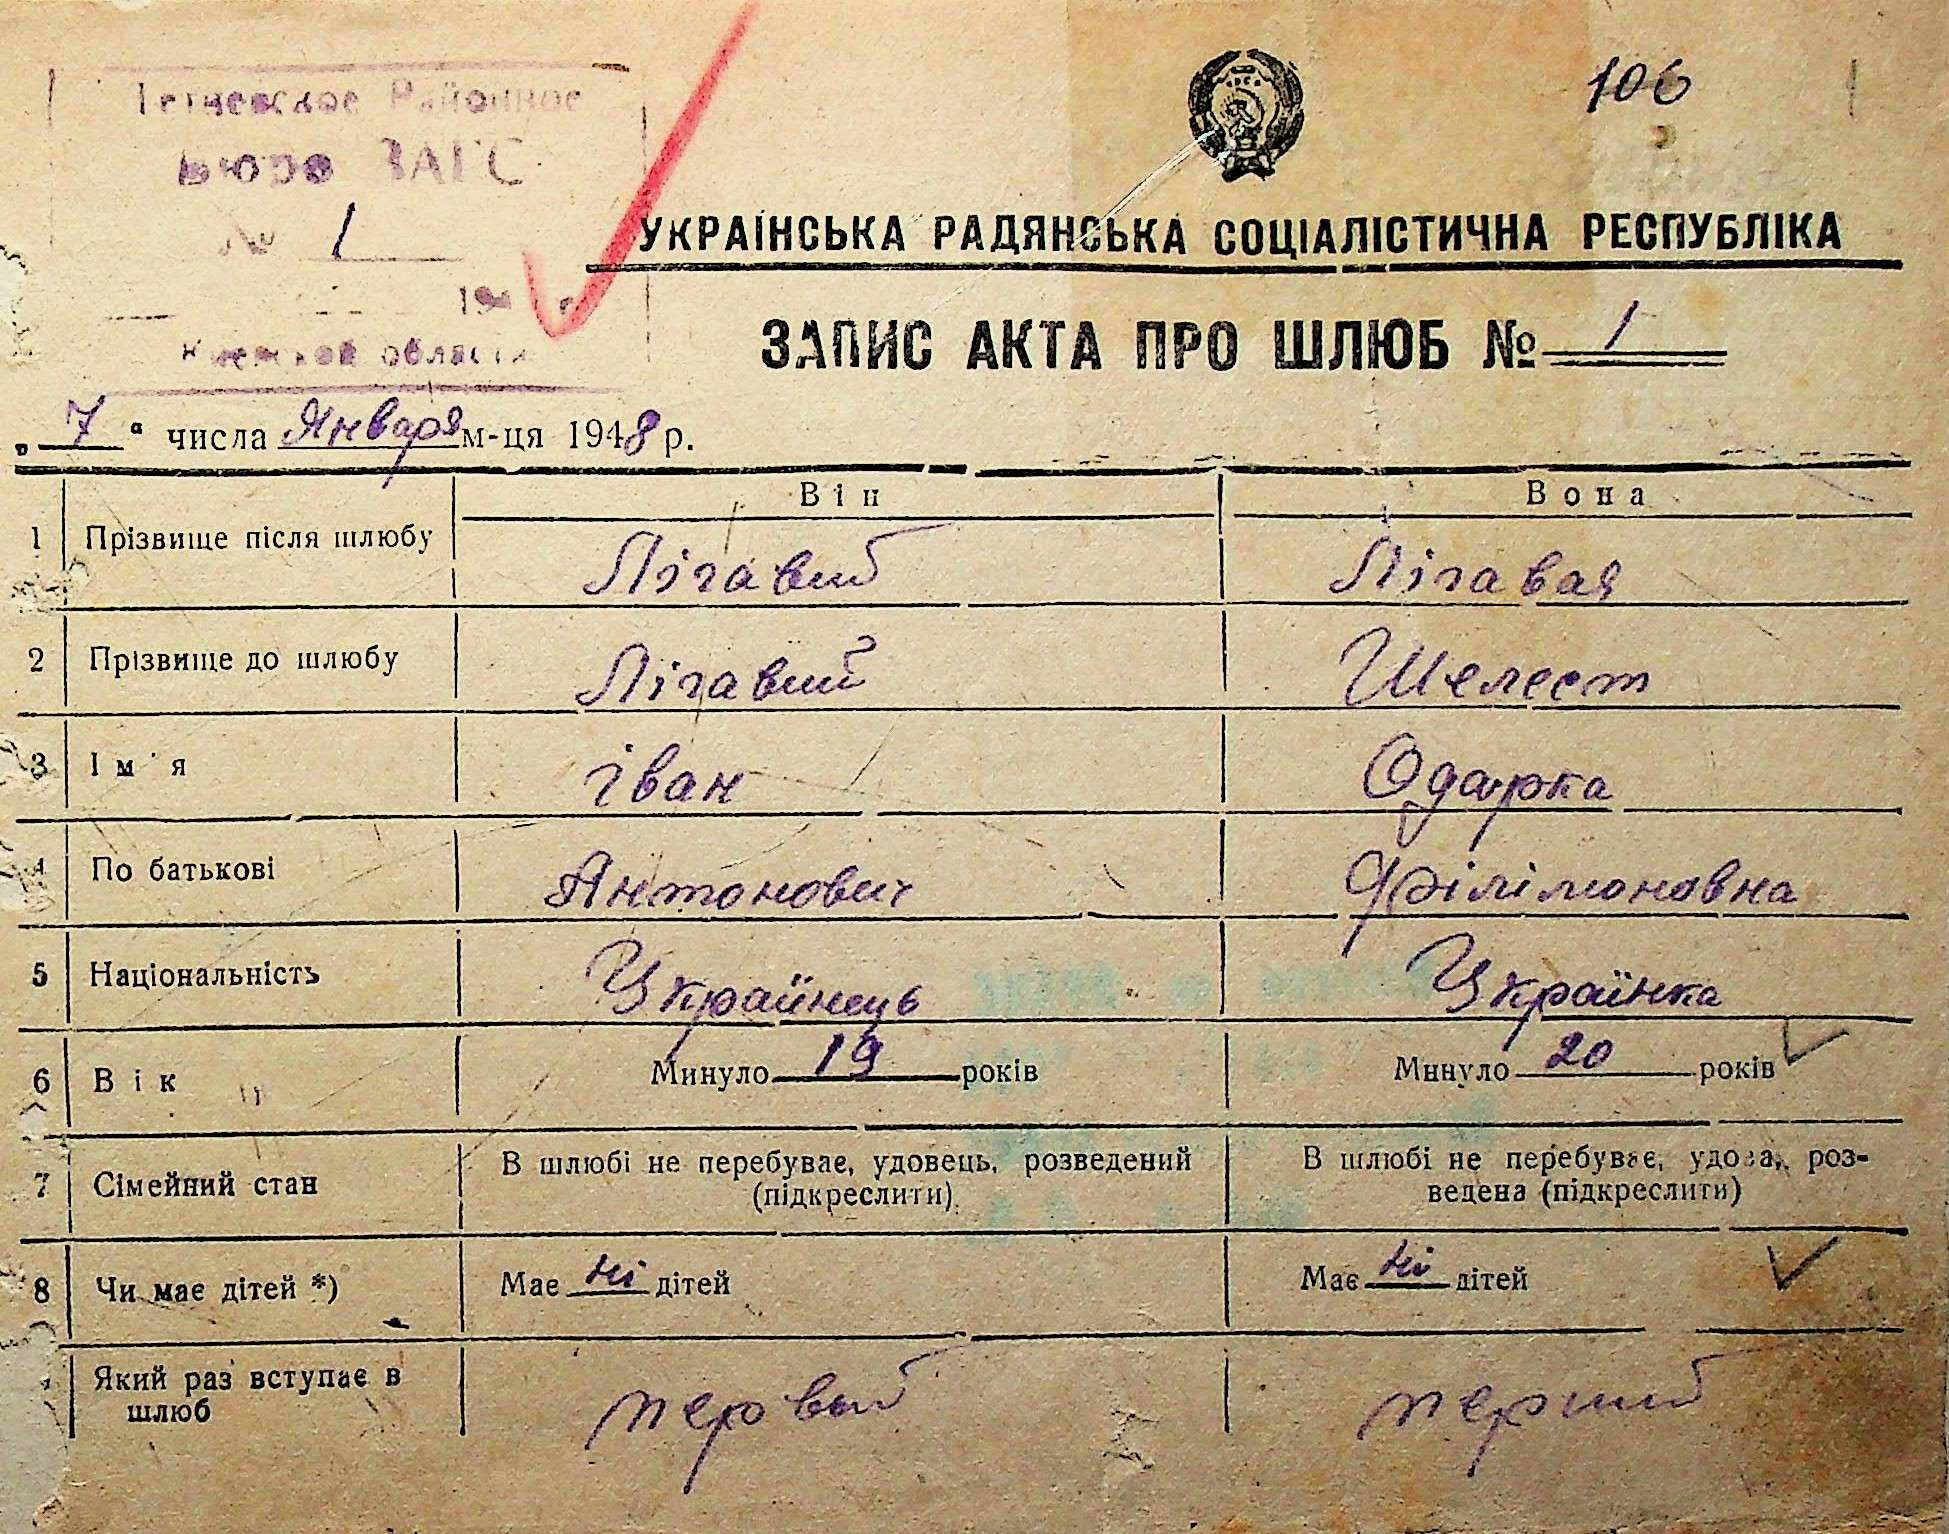 Тетиевское Районное
Бюро ЗАГС
№ 1
194 г.
Киевской области
106
УКРАЇНСЬКА РАДЯНСЬКА СОЦІАЛІСТИЧНА РЕСПУБЛІКА
ЗАПИС АКТА ПРО ШЛЮБ № 1
„ 7 “ числа Января м-ця 1948 р.
Він Вона
1 Прізвище після шлюбу Лігавий Лігавая
2 Прізвище до шлюбу Лігавий Шелест
3 Ім'я Іван Одарка
4 По батькові Антонович Філімоновна
5 Національність Українець Українка
6 Вік Минуло 19 років Минуло 20 років
7 Сімейний стан В шлюбі не перебуває, удовець, розведений (підкреслити) В шлюбі не перебуває, удова, роз-
ведена (підкреслити)
8 Чи має дітей *) Має ні дітей Має ні дітей
Який раз вступає в
шлюб первый перший